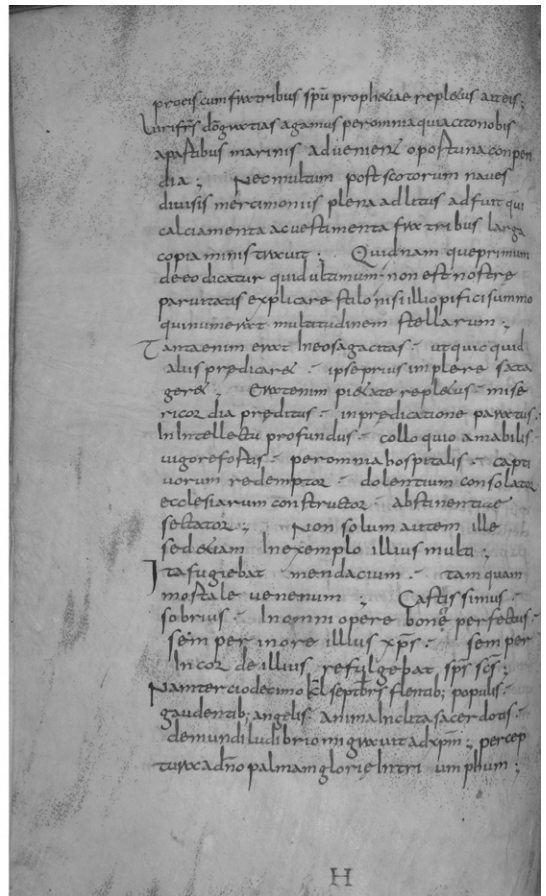 procis cum fratribus spū prophetiae repletus ait eis;
Viri frs dō gratias agamus per omnia quia cito nobis
a partibus marinis advenient oportuna conpen
dia; Nec multum post scotorum naves
divisis mercimoniis plena ad litus adfuit qui
calciamenta ac vestimenta fratribus larga
copia ministravit; Quid nam que primum
de eo dicatur quid ultimum. non est nostre
parvitatis explicare stilo nisi illi opifici summo
qui numerat multitudinem stellarum;
Tanta enim erat In eo sagacitas. ut quic quid
aliis predicaret. ipse prius implere sata
geret. Erat enim pietate repletus. mise
ricordia preditus. in predicatione paratus.
In Intellectu profundus. colloquio amabilis.
vigore fortis. per omnia hospitalis. capti
vorum redemptor. dolentium consolator
ecclesiarum constructor. abstinentiae
sectator; Non solum autem ille
sed etiam In exemplo illius multi;
Ita fugiebat mendacium. tam quam
mortale venenum; Castissimus.
sobrius. In omni opere bonę perfectus.
semper in ore illius xp̄s. semper
In corde illius refulgebat sp̄s sc̄s;
Nam tercio decimo kl septembrs flentib; populis.
gaudentib; angelis. anima Inclita sacerdotis.
de mundi ludibrio migravit ad xp̄m; percep
tura a dn̄o palmam glorię In triumphum;
H